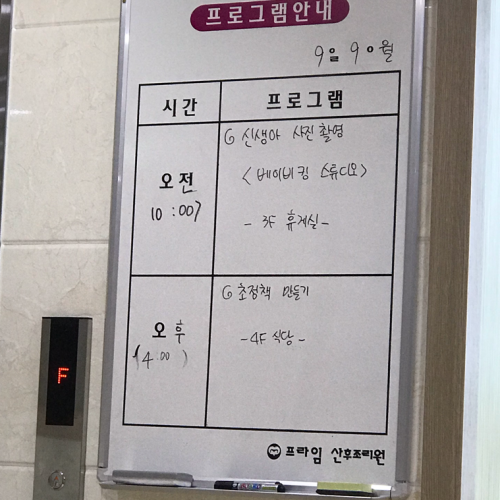 프로그램안내
9일 90월
시간
프로그램
오전
10:00
G 신생아 사진 촬영
<베이비킹 스튜디오>
- 3F 휴게실 -
오후
(4:00)
G 초점책 만들기
- 4F 식당 -
프라임 산후조리원
F